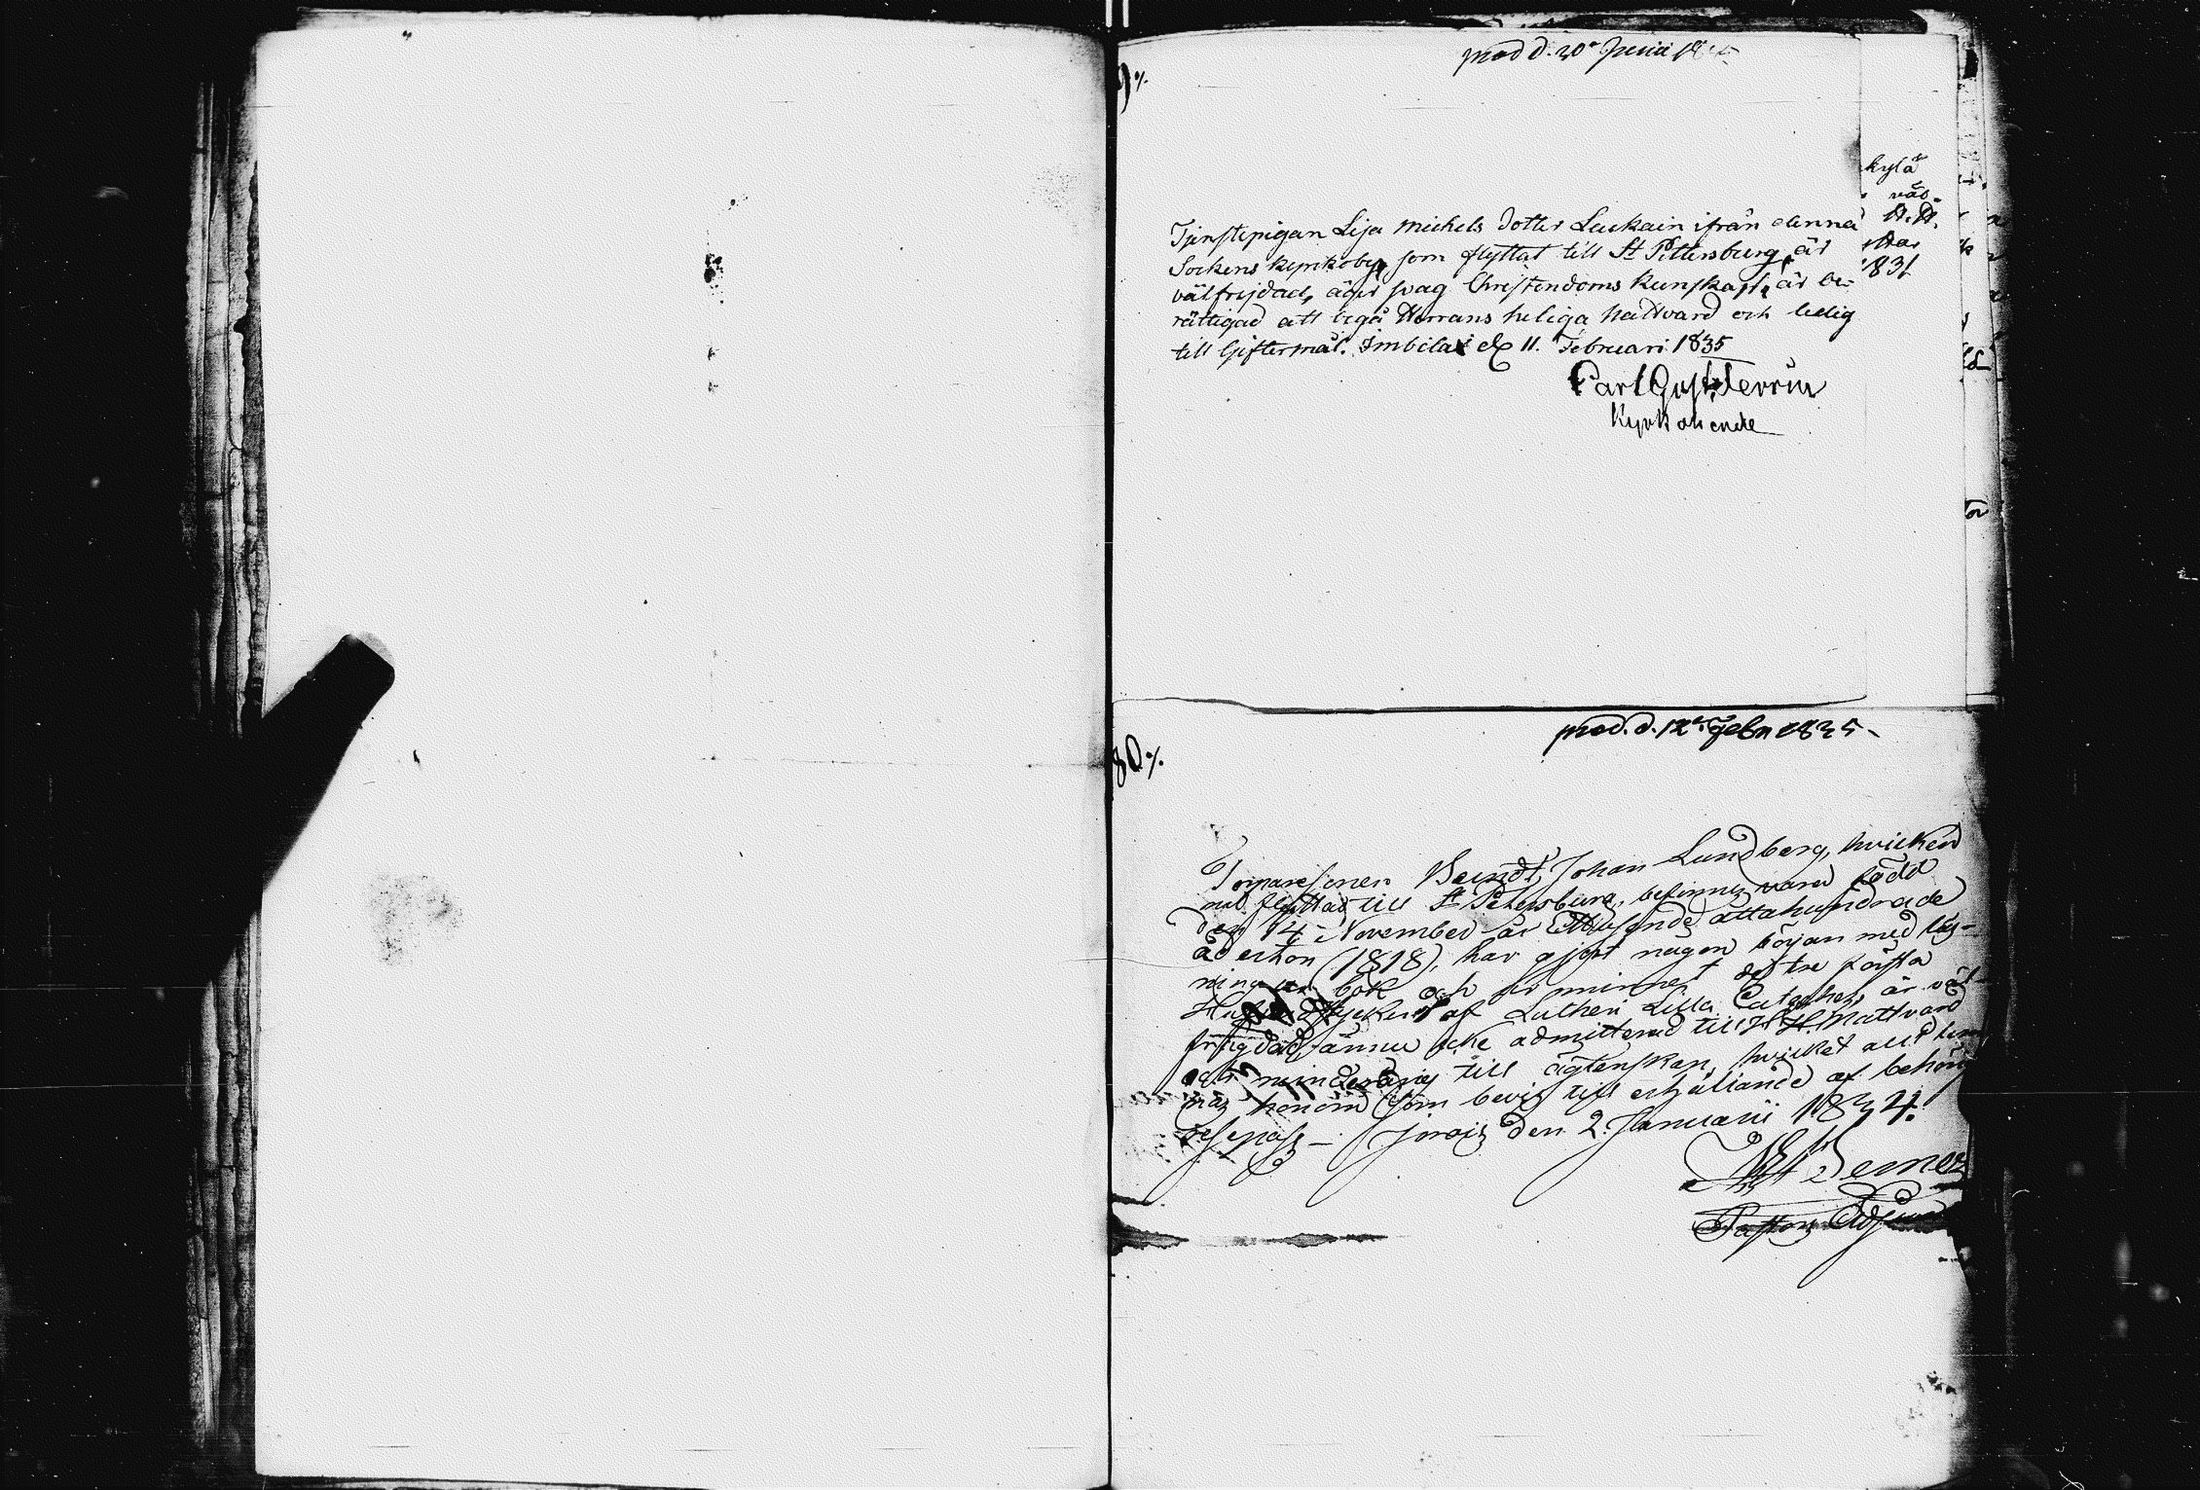 prod d. 20e Junii
9 %.
Tjenstepigan Lisa Michels dotter Laukain ifrån denna
Sockens kyrkoby, som flyttat till St Pettersburg, är
välfrejdad, äger svag Christendoms kunskap, är be-
rättigad att begå Herrans heliga Nattvard och ledig
till Giftermål. Imbilax d. 11. Februari 1835
Carl Gust.
Kyrkoherde
kylä
väl-
H. H.
1831
prod. d. 12e Febr 1835-
80 %.
Johan Lundberg, hvilken
nu flyttar till St Petersburg, befinnes vara född
den 14 November år Ettusende åttahundrade
aderton (1818), har gjort någon början med läs-
ning i bok och ur minnet de tre första
Hufvudstycken af Lutheri Lilla Catechez, är väl-
frägdad, ännu icke admitterad till H. H. Nattvard
och minderårig till ägtenskap, hvilket allt
honom som bevis till erhållande af behörig
Jorois den 2. Januarii 1834.
Pastors Adjunct